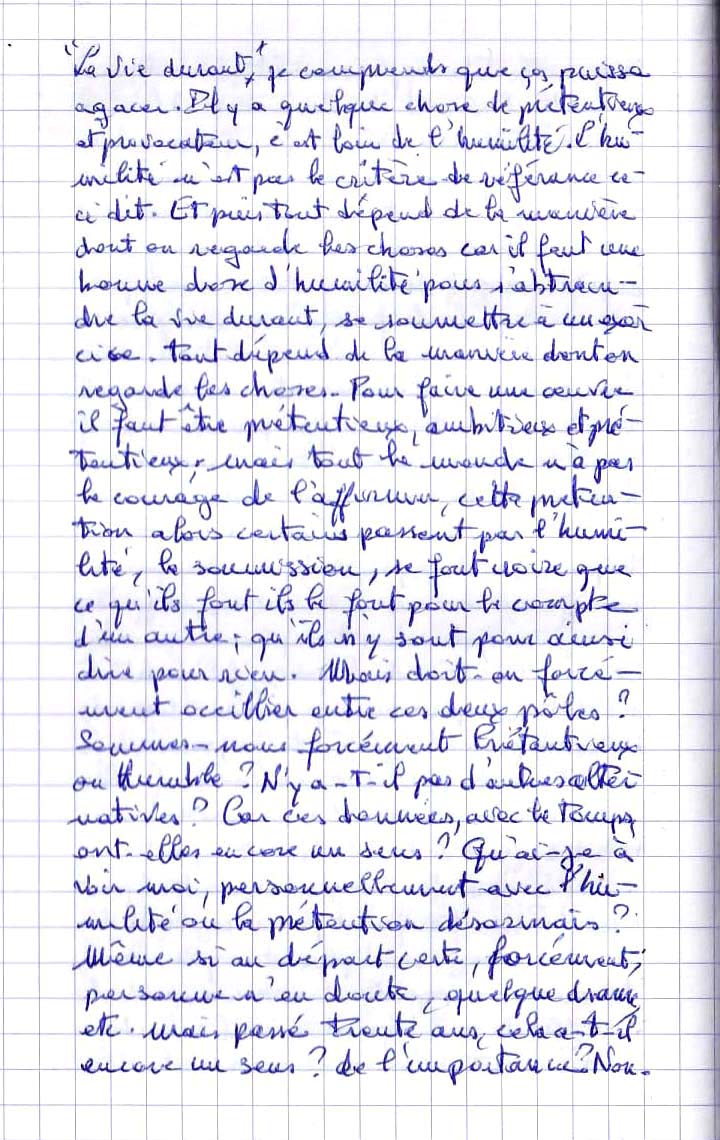 "La vie durant", je comprends que ça puisse
agacer. Il y a quelque chose de prétentieux
et provocateur, c'est loin de l'humilité. L'hu-
milité n'est pas le critère de référance ce-
ci dit. Et puis tout dépend de la manière
dont on regarde les choses car il faut une
bonne dose d'humilité pour s'abtrein-
dre la vie durant, se soumettre à un exer
cice. tout dépend de la manière dont on
regarde les choses. Pour faire une œuvre
il faut être prétentieux, ambitieux et pré-
tentieux, mais tout le monde n'a pas
le courage de l'affirmer, cette préten-
tion alors certains passent par l'humi-
lité, la soumission, se font croire que
ce qu'ils font ils le font pour le compte
d'un autre; qu'ils n'y sont pour ainsi
dire pour rien. Mais doit-on forcé-
ment occillier entre ces deux pôles?
Sommes-nous forcément Prétentieux
ou Humble? N'y a-t-il pas d'autres alter
natives? Car ces données, avec le temps
ont-elles encore un sens? Qu'ai-je à
voir moi, personnellement avec l'hu-
milité ou la prétention désormais?
Même si au départ certe, forcément,
personne n'en doute, quelque
etc. mais passé trente ans, cela a-t-il
encore un sens? de l'importance? Non.